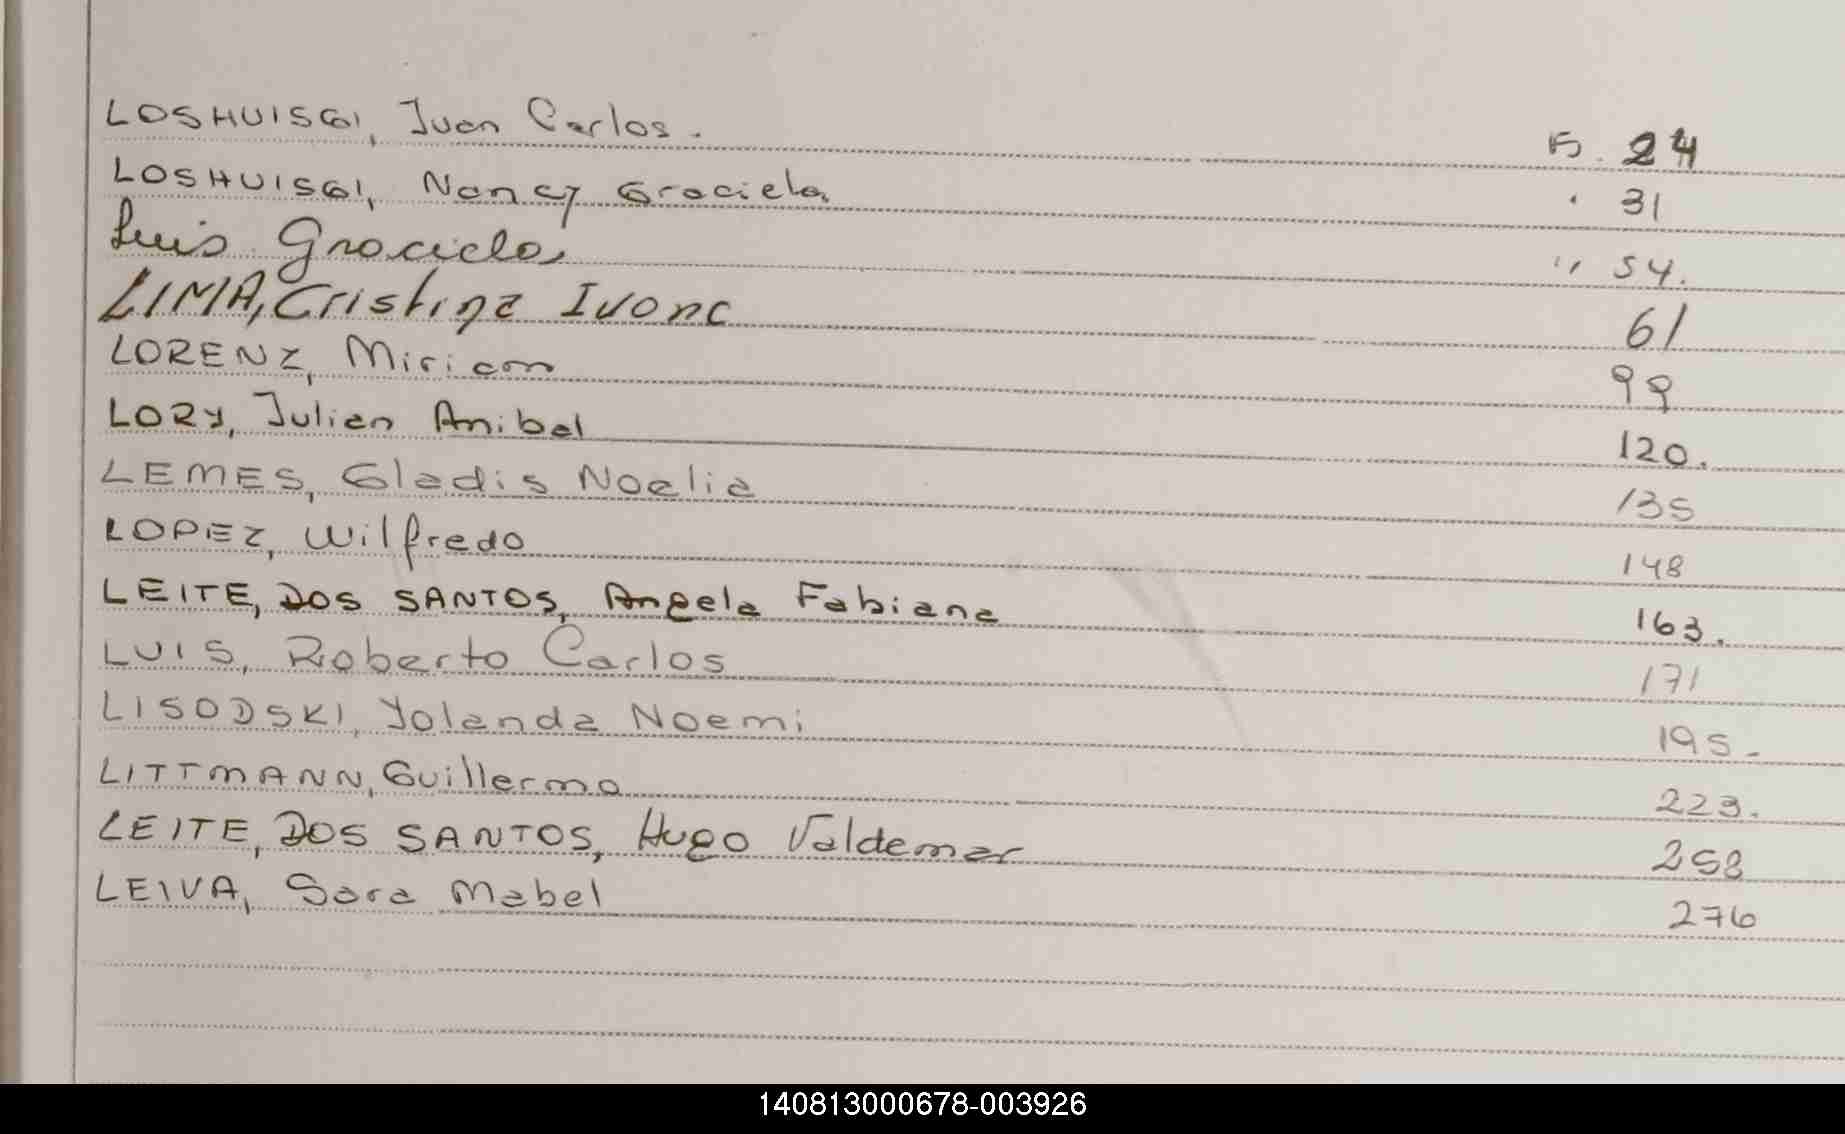 LOSHUISGI, Juan Carlos. F. 24
LOSHUISGI, Nancy Graciela " 31
Luis Graciela " 54.
LIMA, Cristina Ivone 61
LORENZ, Miriam 99
LORY, Julian Anibal 120.
LEMES, Gladis Noelia 135
LOPEZ, Wilfredo 148
LEITE, DOS SANTOS, Angela Fabiana 163.
LUIS, Roberto Carlos 171
LISODSKI, Yolanda Noemi 195.
LITTMANN, Guillermo 223.
LEITE, DOS SANTOS, Hugo Valdemar 258
LEIVA, Sara Mabel 276
140813000678-003926